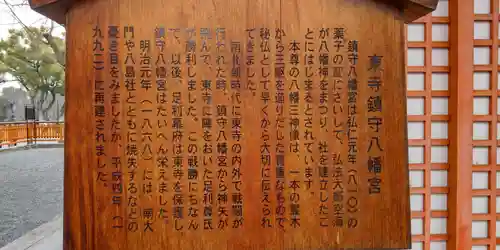 東寺鎮守八幡宮
鎮守八幡宮は弘仁元年（八一〇）の
薬子の変にさいして、弘法大師空海
が八幡神をまつり、社を建立したこ
とにはじまるとされています。
本尊の八幡三神像は、一本の霊木
から三躯を造りだした貴重なもので、
秘仏として早くから大切に伝えられ
てきました。
南北朝時代に東寺の内外で戦闘が
行われた時、鎮守八幡宮から神矢が
飛んで、東寺に陣をおいた足利尊氏
が勝利しました。この戦勝にちなん
で、以後、足利幕府は東寺を保護し、
鎮守八幡宮はたいへん栄えました。
明治元年（一八六八）には、南大
門や八島社とともに焼失するなどの
憂き目をみましたが、平成四年（一
九九二）に再建されました。